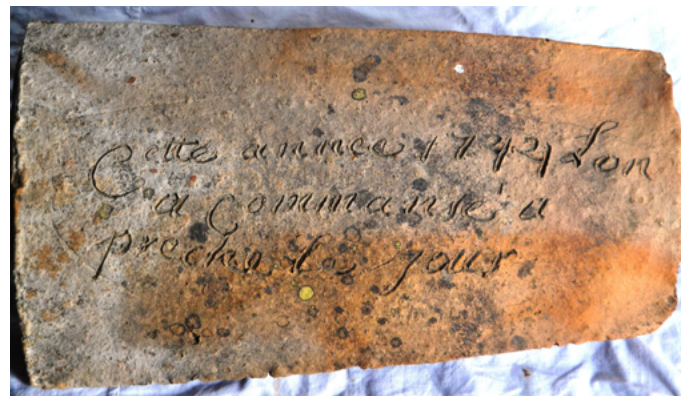 Cette annee 1744 Lon
a Commansé a
precher le jour